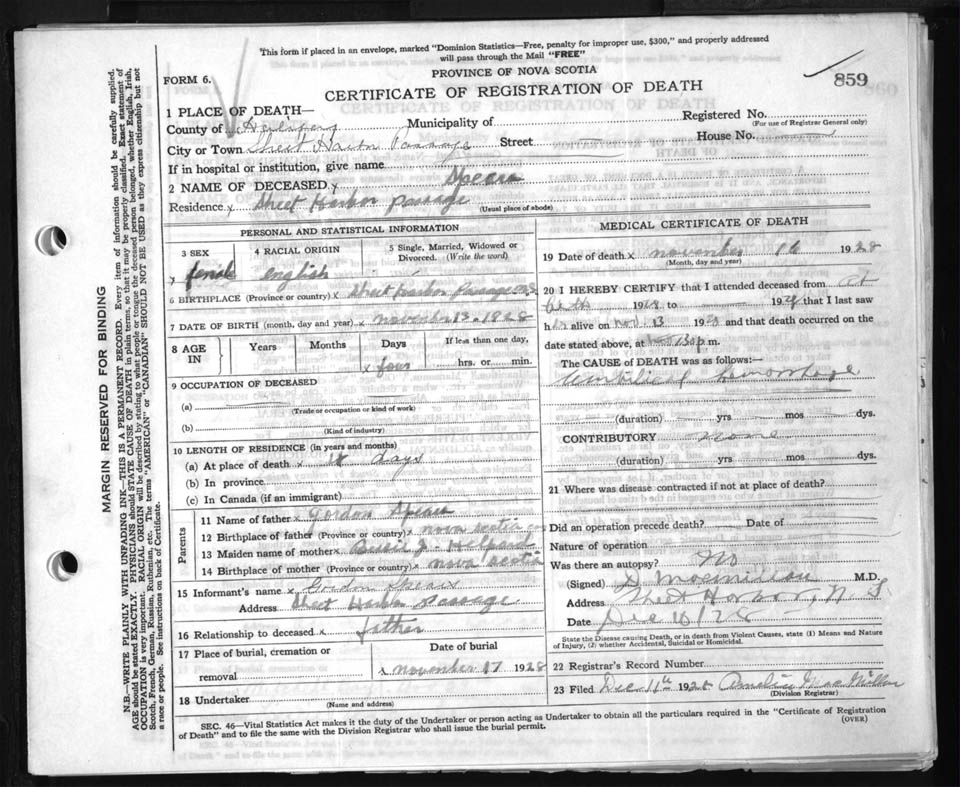 This form if placed in an envelope, marked "Dominion Statistics—Free, penalty for improper use, $300," and properly addressed
will pass through the Mail "FREE"
PROVINCE OF NOVA SCOTIA
FORM 6.
CERTIFICATE OF REGISTRATION OF DEATH
859
1 PLACE OF DEATH—
County of Halifax Municipality of Registered No.
(For use of Registrar General only)
City or Town Sheet Harbor Passage Street House No.
If in hospital or institution, give name
2 NAME OF DECEASED x Spears
Residence x Sheet Harbor Passage (Usual place of abode)
PERSONAL AND STATISTICAL INFORMATION
3 SEX 4 RACIAL ORIGIN 5 Single, Married, Widowed or Divorced. (Write the word)
x female english
6 BIRTHPLACE (Province or country) x Sheet Harbor Passage N.S
7 DATE OF BIRTH (month, day and year) x november 13 - 1928
8 AGE IN Years Months Days If less than one day,
x four hrs. or min.
9 OCCUPATION OF DECEASED
(a)
(Trade or occupation or kind of work)
(b)
(Kind of industry)
10 LENGTH OF RESIDENCE (in years and months)
(a) At place of death x 4 days
(b) In province
(c) In Canada (if an immigrant)
Parents
11 Name of father x Gordon Spears
12 Birthplace of father (Province or country) x nova scotia
13 Maiden name of mother x Bessie J.
14 Birthplace of mother (Province or country) x nova scotia
15 Informant's name x Gordon Spears
Address Sheet Harbor Passage
16 Relationship to deceased x father
17 Place of burial, cremation or removal Date of burial
x november 17 1928
18 Undertaker
(Name and address)
MEDICAL CERTIFICATE OF DEATH
19 Date of death x november 16 1928
(Month, day and year)
20 I HEREBY CERTIFY that I attended deceased from at
birth 1928 to 1928 that I last saw
her alive on Nov 13 1928 and that death occurred on the
date stated above, at 130 p m.
The CAUSE OF DEATH was as follows:—
Umbilical hemorrhage
(duration) yrs mos dys.
CONTRIBUTORY none
(duration) yrs mos dys.
21 Where was disease contracted if not at place of death?
Did an operation precede death? Date of
Nature of operation
Was there an autopsy? No
(Signed) D Macmillan M.D.
Address Sheet Harbor, N S
Date Dec 10/28
State the Disease causing Death, or in death from Violent Causes, state (1) Means and Nature
of Injury, (2) whether Accidental, Suicidal or Homicidal.
22 Registrar's Record Number
23 Filed Dec 11th 1928 Amelia MacMillan
(Division Registrar)
SEC. 46—Vital Statistics Act makes it the duty of the Undertaker or person acting as Undertaker to obtain all the particulars required in the "Certificate of Registration
of Death" and to file the same with the Division Registrar who shall issue the burial permit. (OVER)
MARGIN RESERVED FOR BINDING
N.B.—WRITE PLAINLY WITH UNFADING INK—THIS IS A PERMANENT RECORD. Every item of information should be carefully supplied.
AGE should be stated EXACTLY. PHYSICIANS should STATE CAUSE OF DEATH in plain terms, so that it may be properly classified. Exact statement of
OCCUPATION is very important. RACIAL ORIGIN will be described by stating to what people or tongue the deceased person belonged, whether English, Irish,
Scotch, French, German, Russian, Ruthenian, etc. The terms "AMERICAN" or "CANADIAN" SHOULD NOT BE USED as they express citizenship but not
a race or people. See instructions on back of Certificate.